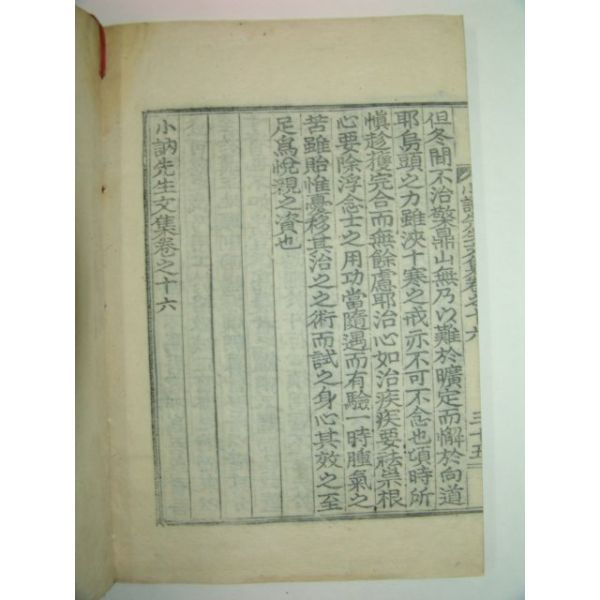 小訥先生文集卷之十六
三十五
但冬間不治檠鼎山無乃以難於曠定而懈於向道
耶烏頭之力雖浹十寒之戒亦不可不念也頃時所
愼趁獲完合而無餘慮耶治心如治疾疾要祛祟根
心要除浮念士之用功當隨遇而有驗一時腫氣之
苦雖貽惟憂移其治之之術而試之身心其效之至
足爲悅親之資也
小訥先生文集卷之十六